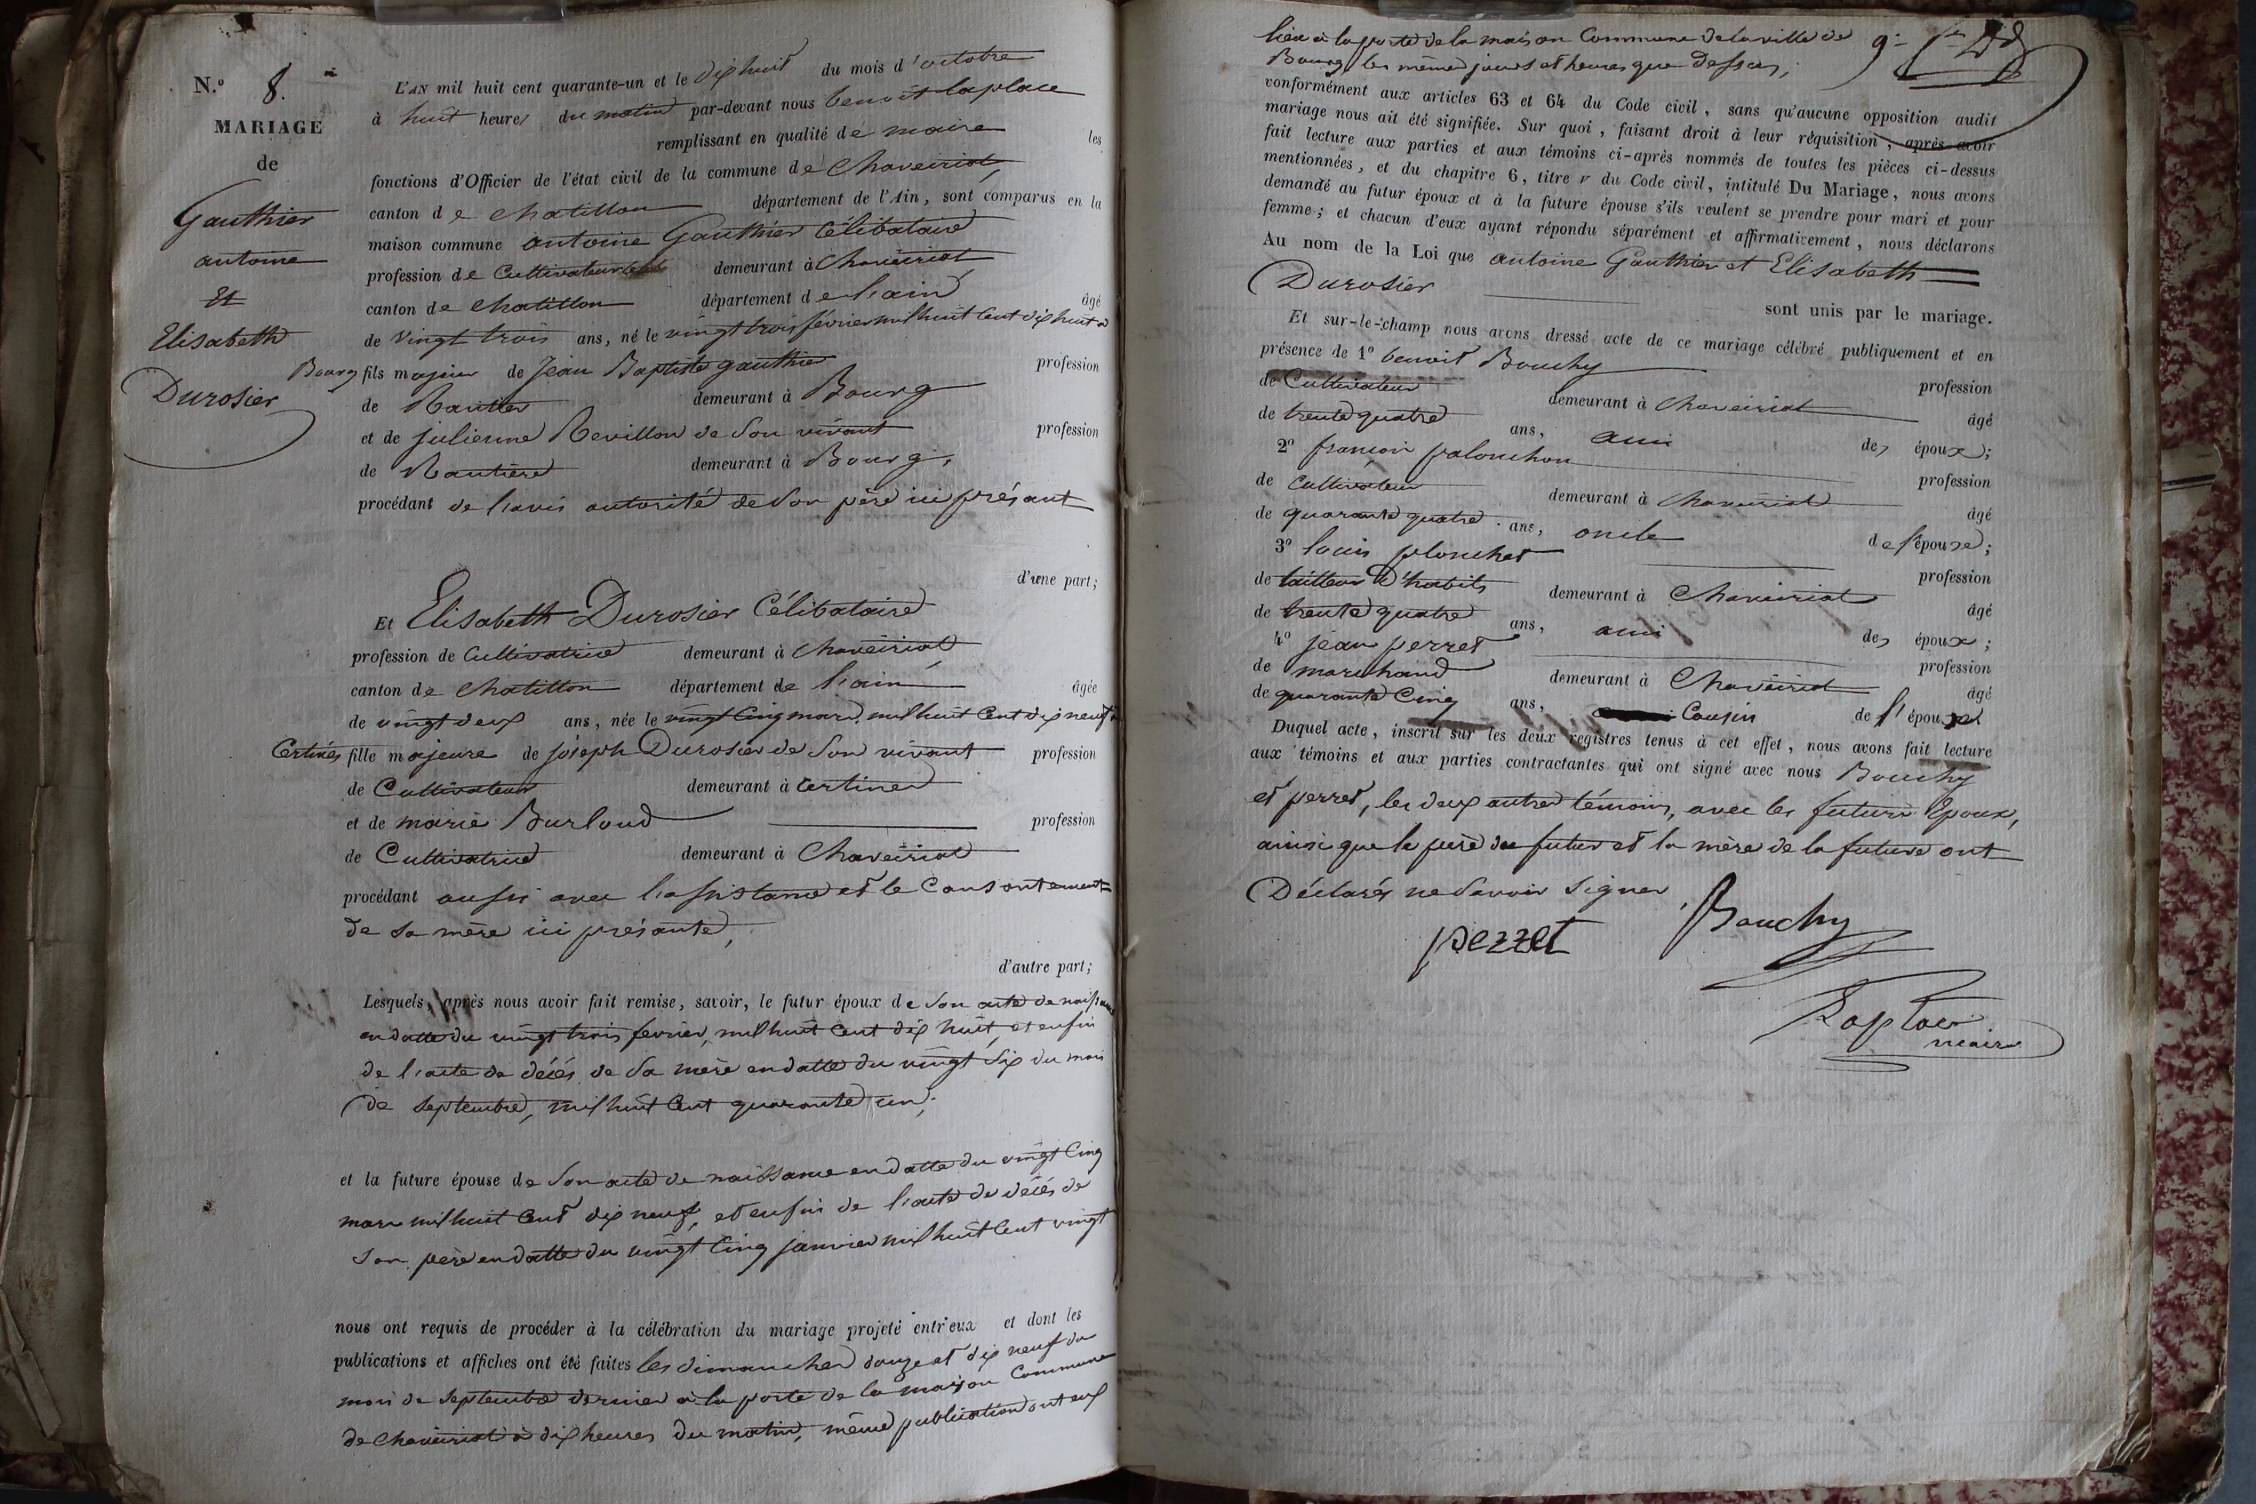 N.° 8.
MARIAGE
de
Gauthier
antoine
Et
Elisabeth
Durosier
L'AN mil huit cent quarante-un et le dix huit du mois d'octobre
à huit heures du matin par-devant nous benoit laplace
remplissant en qualité de maire les
fonctions d'Officier de l'état civil de la commune de Chaveiriat,
canton de chatillon département de l'Ain, sont comparus en la
maison commune antoine Gauthier Célibataire
profession de Cultivateur demeurant à Chaveiriat
canton de chatillon département de l'ain âgé
de vingt trois ans, né le vingt trois février mil huit cent dix huit à
Bourg fils majeur de Jean Baptiste gauthier profession
de Rantier demeurant à Bourg
et de julienne Revillon de son vivant profession
de Rantière demeurant à Bourg,
procédant de l'avis autorité de son père ici présant
d'une part;
Et Elisabeth Durosier Célibataire
profession de Cultivatrice demeurant à Chaveiriat
canton de chatillon département de l'ain âgée
de vingt deux ans, née le vingt Cinq mars mil huit Cent dix neuf à
Certines fille majeure de joseph Durosier de son vivant profession
de Cultivateur demeurant à Certines
et de marie Burloud profession
de Cultivatrice demeurant à Chaveiriat
procédant aussi avec l'assistance et le Consontement
de sa mère ici présante,
d'autre part;
Lesquels, après nous avoir fait remise, savoir, le futur époux de son acte de naissance
en datte du vingt trois fevrier, mil huit Cent dix huit, et enfin
de l'acte de déiés de sa mère en datte du vingt six du mois
de septembre, mil huit Cent quarante un;
et la future épouse de son acte de naissance en datte du vingt Cinq
mars mil huit Cent dix neuf, et enfin de l'acte de déiés de
son père en datte du vingt Cinq janvier mil huit Cent vingt
nous ont requis de procéder à la célébration du mariage projeté entr'eux et dont les
publications et affiches ont été faites les dimanches douze et dix neuf du
mois de septembre dernier à la porte de la maison Commune
de Chaveiriat à dix heures du matin, même publication ont eux
lieu à la porte de la maison Commune de la ville de
Bourg, les même jours et heures que dessus,
conformément aux articles 63 et 64 du Code civil, sans qu'aucune opposition audit
mariage nous ait été signifiée. Sur quoi, faisant droit à leur réquisition, après avoir
fait lecture aux parties et aux témoins ci-après nommés de toutes les pièces ci-dessus
mentionnées, et du chapitre 6, titre v du Code civil, intitulé Du Mariage, nous avons
demandé au futur époux et à la future épouse s'ils veulent se prendre pour mari et pour
femme; et chacun d'eux ayant répondu séparément et affirmativement, nous déclarons
Au nom de la Loi que antoine Gauthier et Elisabeth
Durosier sont unis par le mariage.
Et sur-le-champ nous avons dressé acte de ce mariage célébré publiquement et en
présence de 1° benoit Bouchy profession
de Cultivateur demeurant à Chaveiriat âgé
de trente quatre ans, ami des époux;
2° françois palonchon profession
de Cultivateur demeurant à Chaveiriat âgé
de quarante quatre ans, oncle de l'épouse;
3° louis plonchet profession
de tailleur D'habits demeurant à Chaveiriat âgé
de trente quatre ans, ami des époux;
4° jean perret profession
de marchand demeurant à Chaveiriat âgé
de quarante Cinq ans, Cousin de l'époux
Duquel acte, inscrit sur les deux registres tenus à cet effet, nous avons fait lecture
aux témoins et aux parties contractantes qui ont signé avec nous Bouchy
et perret, les deux autres témoins, avec les futurs Epoux,
ainsi que le père du futur et la mère de la future ont
Déclarés ne savoir signer
perret Bouchy
Laplace
maire